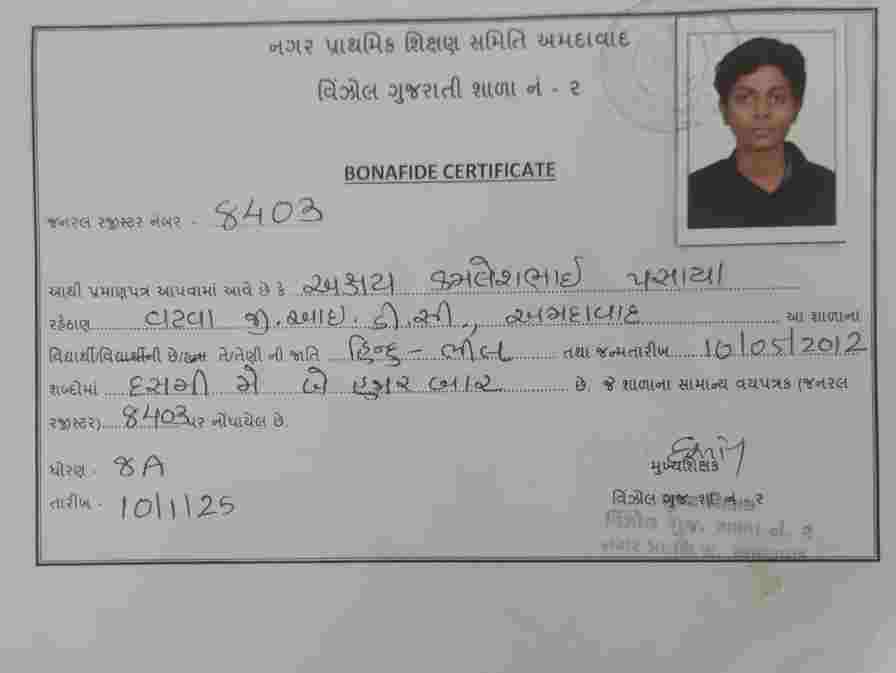 નગર પ્રાથમિક શિક્ષણ સમિતિ અમદાવાદ
વિંઝોલ ગુજરાતી શાળા નં - ૨
BONAFIDE CERTIFICATE
જનરલ રજીસ્ટર નંબર - 8403
આથી પ્રમાણપત્ર આપવામાં આવે છે કે અક્ષય કમલેશભાઈ પસાયા
રહેઠાણ વટવા જી.આઇ.ડી.સી., અમદાવાદ આ શાળાના
વિદ્યાર્થી/વિદ્યાર્થીની છે/હતા તે/તેણી ની જાતિ હિન્દુ - ભીલ તથા જન્મતારીખ 10/05/2012
શબ્દોમાં દસમી મે બે હજાર બાર છે. જે શાળાના સામાન્ય વયપત્રક (જનરલ
રજીસ્ટર) 8403 પર નોંધાયેલ છે.
ધોરણ - 8A
મુખ્યશિક્ષક
તારીખ - 10/1/25
વિંઝોલ ગુજ. શા. નં - ૨
વિંઝોલ ગુજ. શાળા નં. ૨